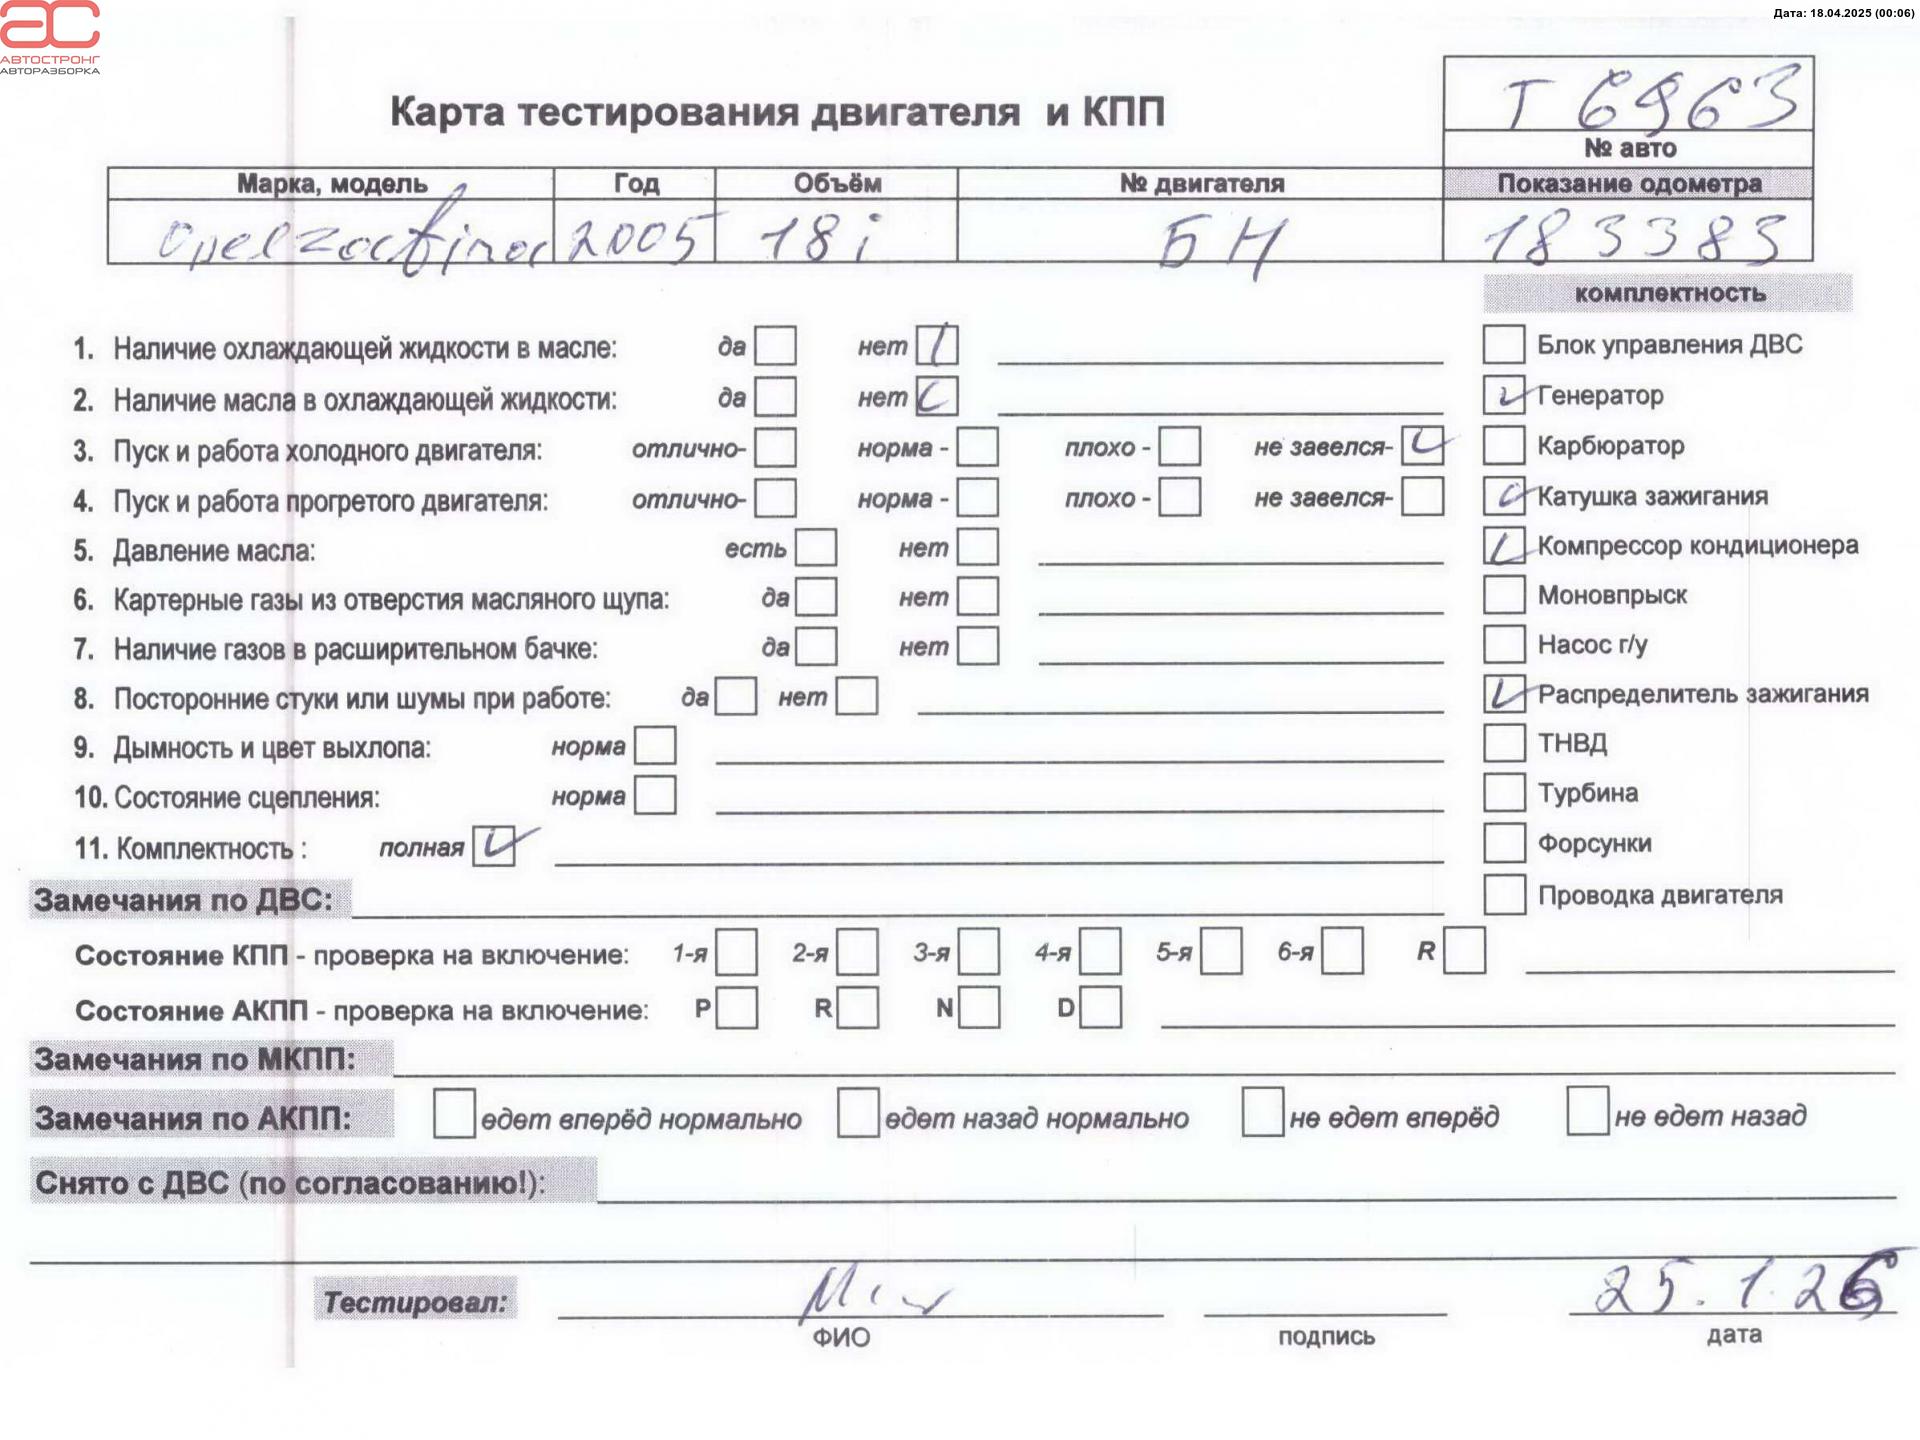 Дата: 18.04.2025 (00:06)
АС
АВТОСТРОНГ
АВТОРАЗБОРКА
Т 6963
Карта тестирования двигателя и КПП
№ авто
Марка, модель Год Объём № двигателя Показание одометра
Opel zafira 2005 18i БН 183383
комплектность
1. Наличие охлаждающей жидкости в масле: да нет
Блок управления ДВС
2. Наличие масла в охлаждающей жидкости: да нет
Генератор
3. Пуск и работа холодного двигателя: отлично- норма - плохо - не завелся-
Карбюратор
4. Пуск и работа прогретого двигателя: отлично- норма - плохо - не завелся-
Катушка зажигания
5. Давление масла: есть нет
Компрессор кондиционера
6. Картерные газы из отверстия масляного щупа: да нет
Моновпрыск
7. Наличие газов в расширительном бачке: да нет
Насос г/у
8. Посторонние стуки или шумы при работе: да нет
Распределитель зажигания
9. Дымность и цвет выхлопа: норма
ТНВД
10. Состояние сцепления: норма
Турбина
11. Комплектность : полная
Форсунки
Замечания по ДВС:
Проводка двигателя
Состояние КПП - проверка на включение: 1-я 2-я 3-я 4-я 5-я 6-я R
Состояние АКПП - проверка на включение: P R N D
Замечания по МКПП:
Замечания по АКПП: едет вперёд нормально едет назад нормально не едет вперёд не едет назад
Снято с ДВС (по согласованию!):
Тестировал: 25.1.26
ФИО подпись дата